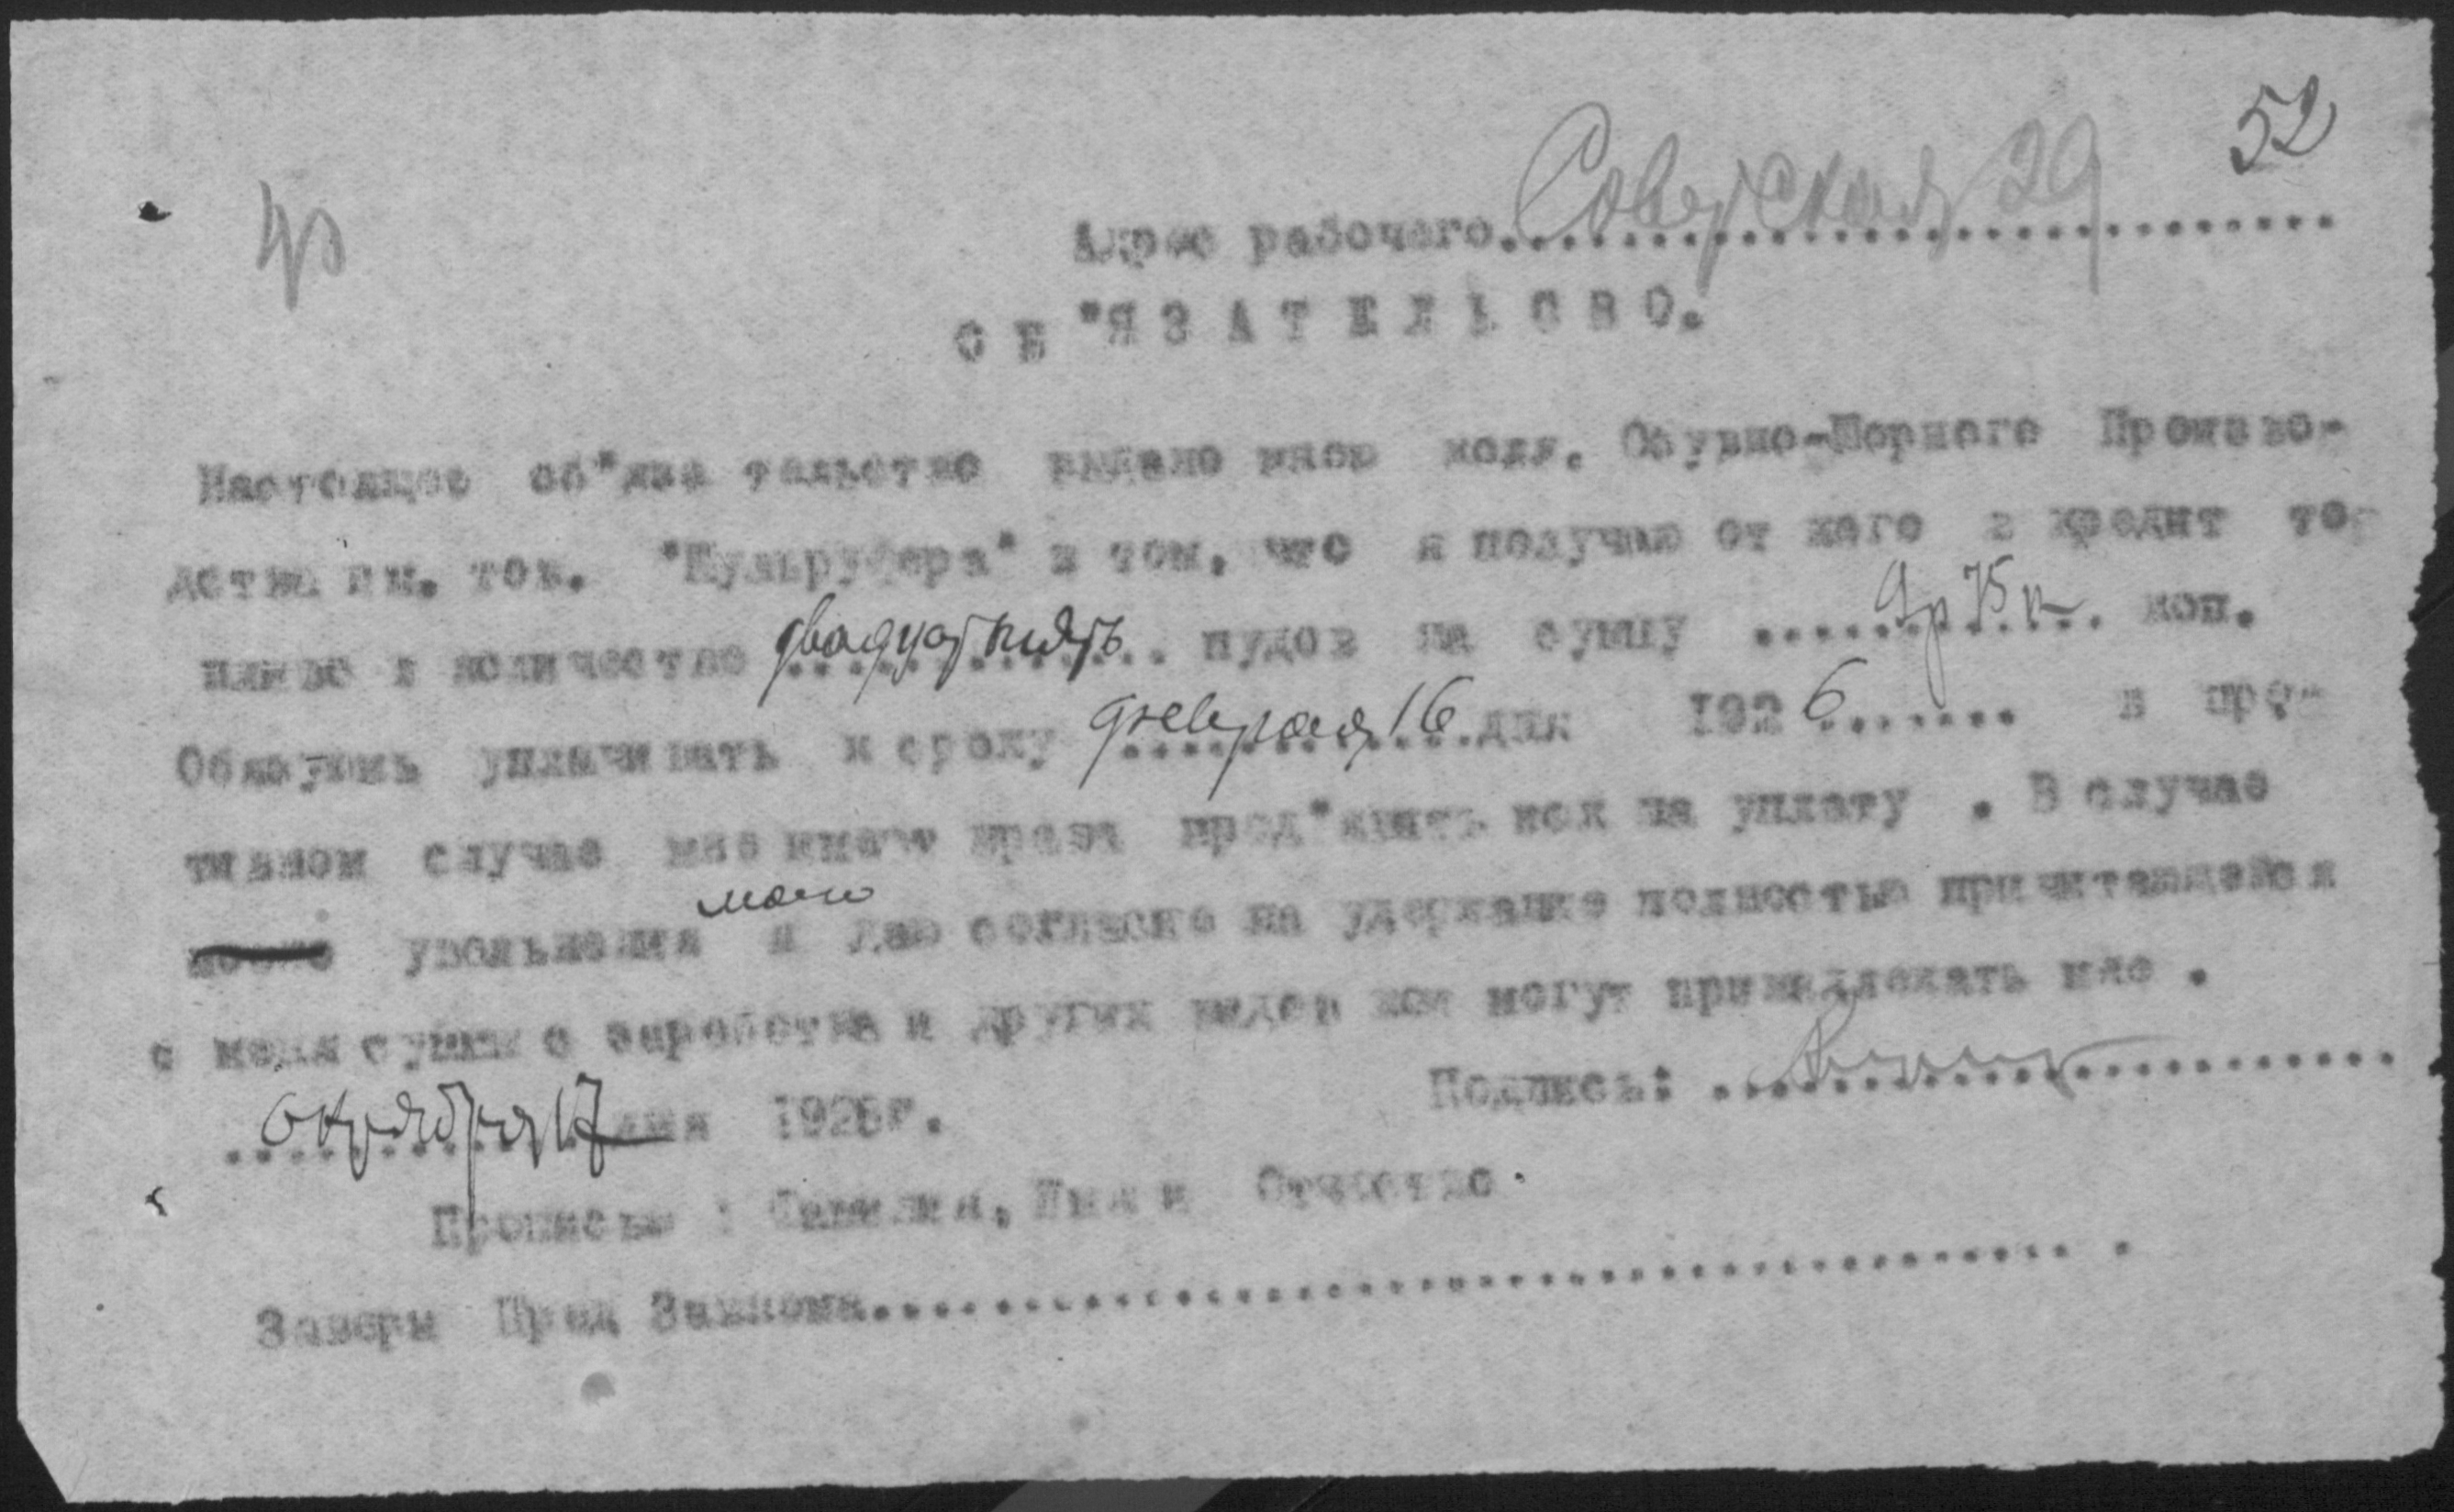 52
40
Адрес рабочего Советская 29
О Б "Я З А Т Е Л Ь С В О.
Настоящее об"яза тельство выдано мною колл. Обувно-Шорного Произво-
дства им. тов. "Шульруфера" в том, что я получаю от него в кредит то-
пливо в количестве двадцат пять пудов на сумму 9р 75к коп.
Обязуюсь уплачивать к сроку февраля 16 дня 1926 в про-
тивном случае имеют права пред"явить иск на уплату . В случае
моего
увольнения я даю согласие на удержание полностью причитающейся
с меня суммы с заработка и других видов кои могут принадлежать мне .
октября 17 дня 1925г. Подпись:
Прописью : Фамилия, Имя и Отчество.
Заверы Пред Завкома